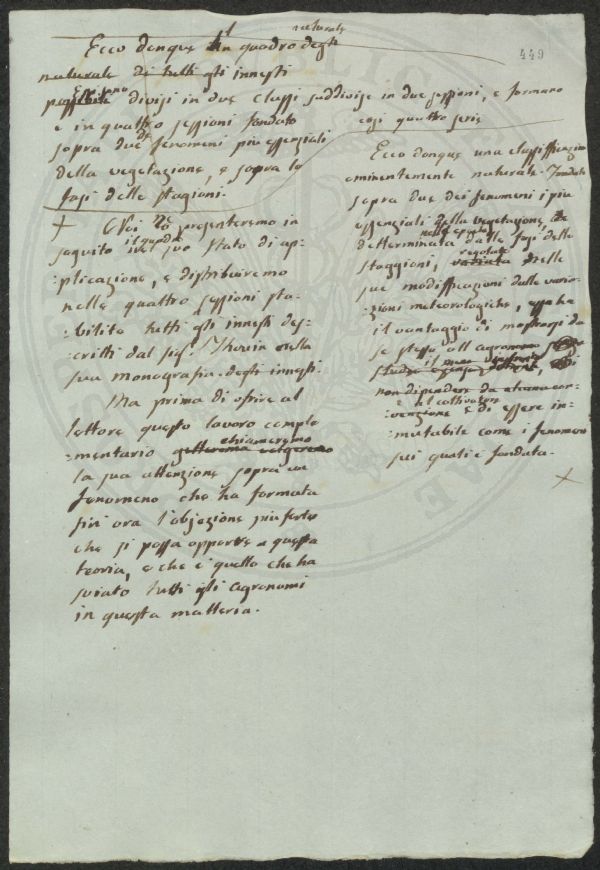 449
naturale
Ecco donque un quadro degli
naturale di tutti gli innesti
possibile divisi in due classi suddivise in due sessioni, e formano
e in quattro sessioni fondato
sopra due fenomeni piu essenziali
della vegetazione, e sopra le
fasi delle stagioni.
+ Noi ne presenteremo in
seguito il quadro nel suo stato di ap-
-plicazione, e distribuiremo
nelle quattro sessioni sta-
-bilite tutti gli innesti des-
-critti dal sig.r Thouin nella
sua monografia degli innesti.
Ma prima di ofrire al
lettore questo lavoro comple
-mentario chiameremo
la sua attenzione sopra un
fenomeno che ha formata
fin ora l'objezione piu forte
che si possa opporre a questa
teoria, e che è quello che ha
sviato tutti gli agronomi
in questa matteria.
cosi quattro serie
Ecco donque una classifficazione
eminentemente naturale. Fondata
sopra due dei fenomeni i piu
essenziali della vegetazione,
determinata dalle fasi delle
staggioni, regolata nelle
sue modifficazioni dalle varia-
-zioni meteorologiche, essa ha
il vantaggio di mostrarsi da
se stessa all'agronomo
non dipendere da alcuna con-
e al coltivatore
-venzione e di essere in-
-mutabile come i fenomeni
sui quali è fondata.
+